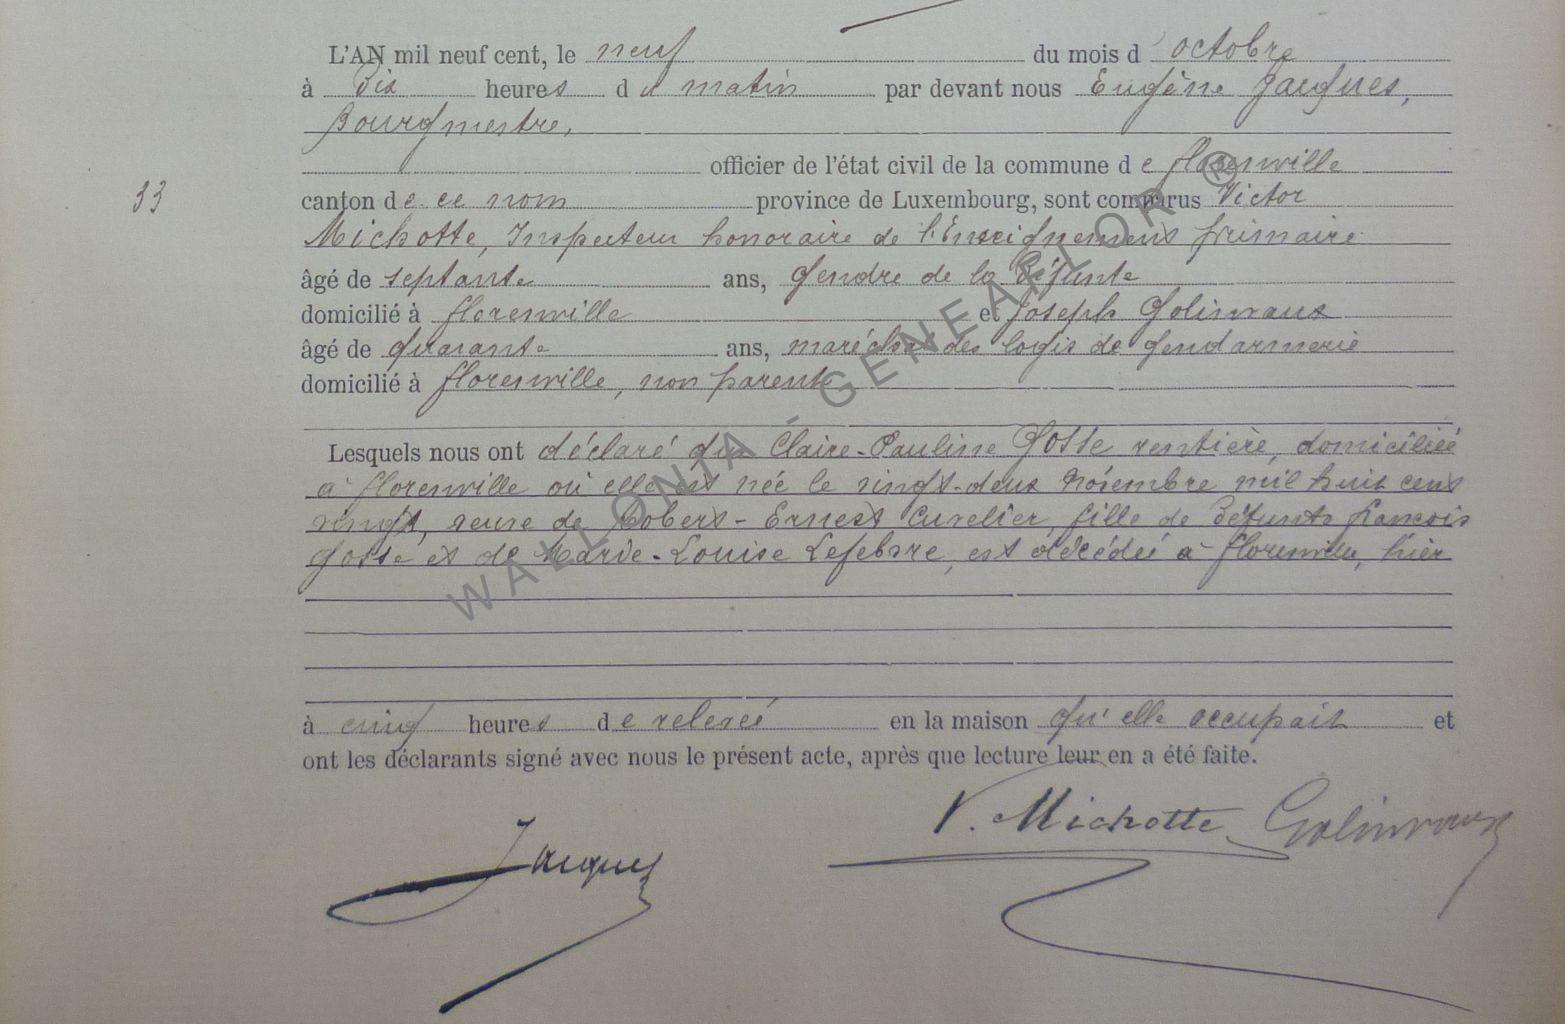 L'AN mil neuf cent, le neuf du mois d'octobre
à Dix heures du matin par devant nous Eugène Jacques,
Bourgmestre,
officier de l'état civil de la commune de florenville
33
canton de ce nom province de Luxembourg, sont comparus Victor
Michotte, Inspecteur honoraire de l'Enseignement primaire
âgé de septante ans, gendre de la Défunte
domicilié à florenville et Joseph Golinvaux
âgé de quarante ans, maréchal des logis de gendarmerie
domicilié à florenville, non parent
Lesquels nous ont déclaré que Claire-Pauline Gosse rentière, domiciliée
à florenville où elle est née le vingt-deux Novembre mil huit cent
vingt, veuve de Robert-Ernest Cuvelier, fille de Défunts françois
Gosse et de Marie-Louise Lefebvre, est décédée à florenville, hier
à cinq heures de relevée en la maison qu'elle occupait et
ont les déclarants signé avec nous le présent acte, après que lecture leur en a été faite.
V. Michotte Golinvaux
Jacques
WALLONIA - GENEAFLOR ®